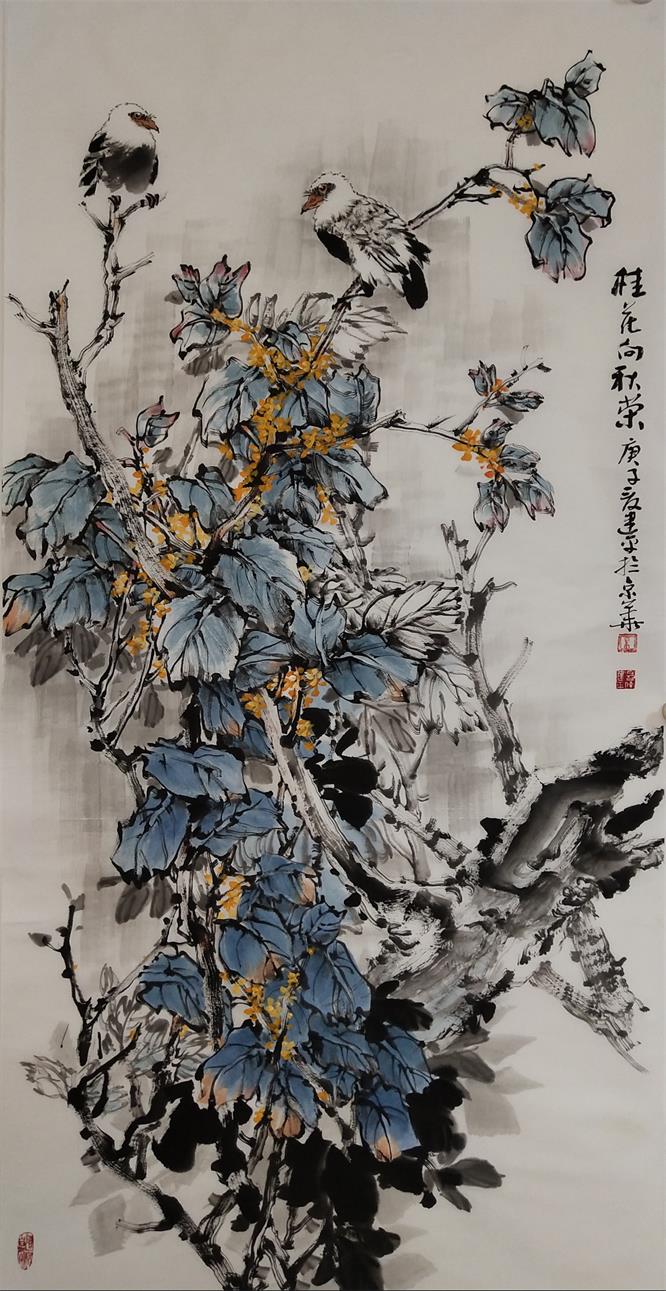 桂花向秋荣庚子夏建平於京华